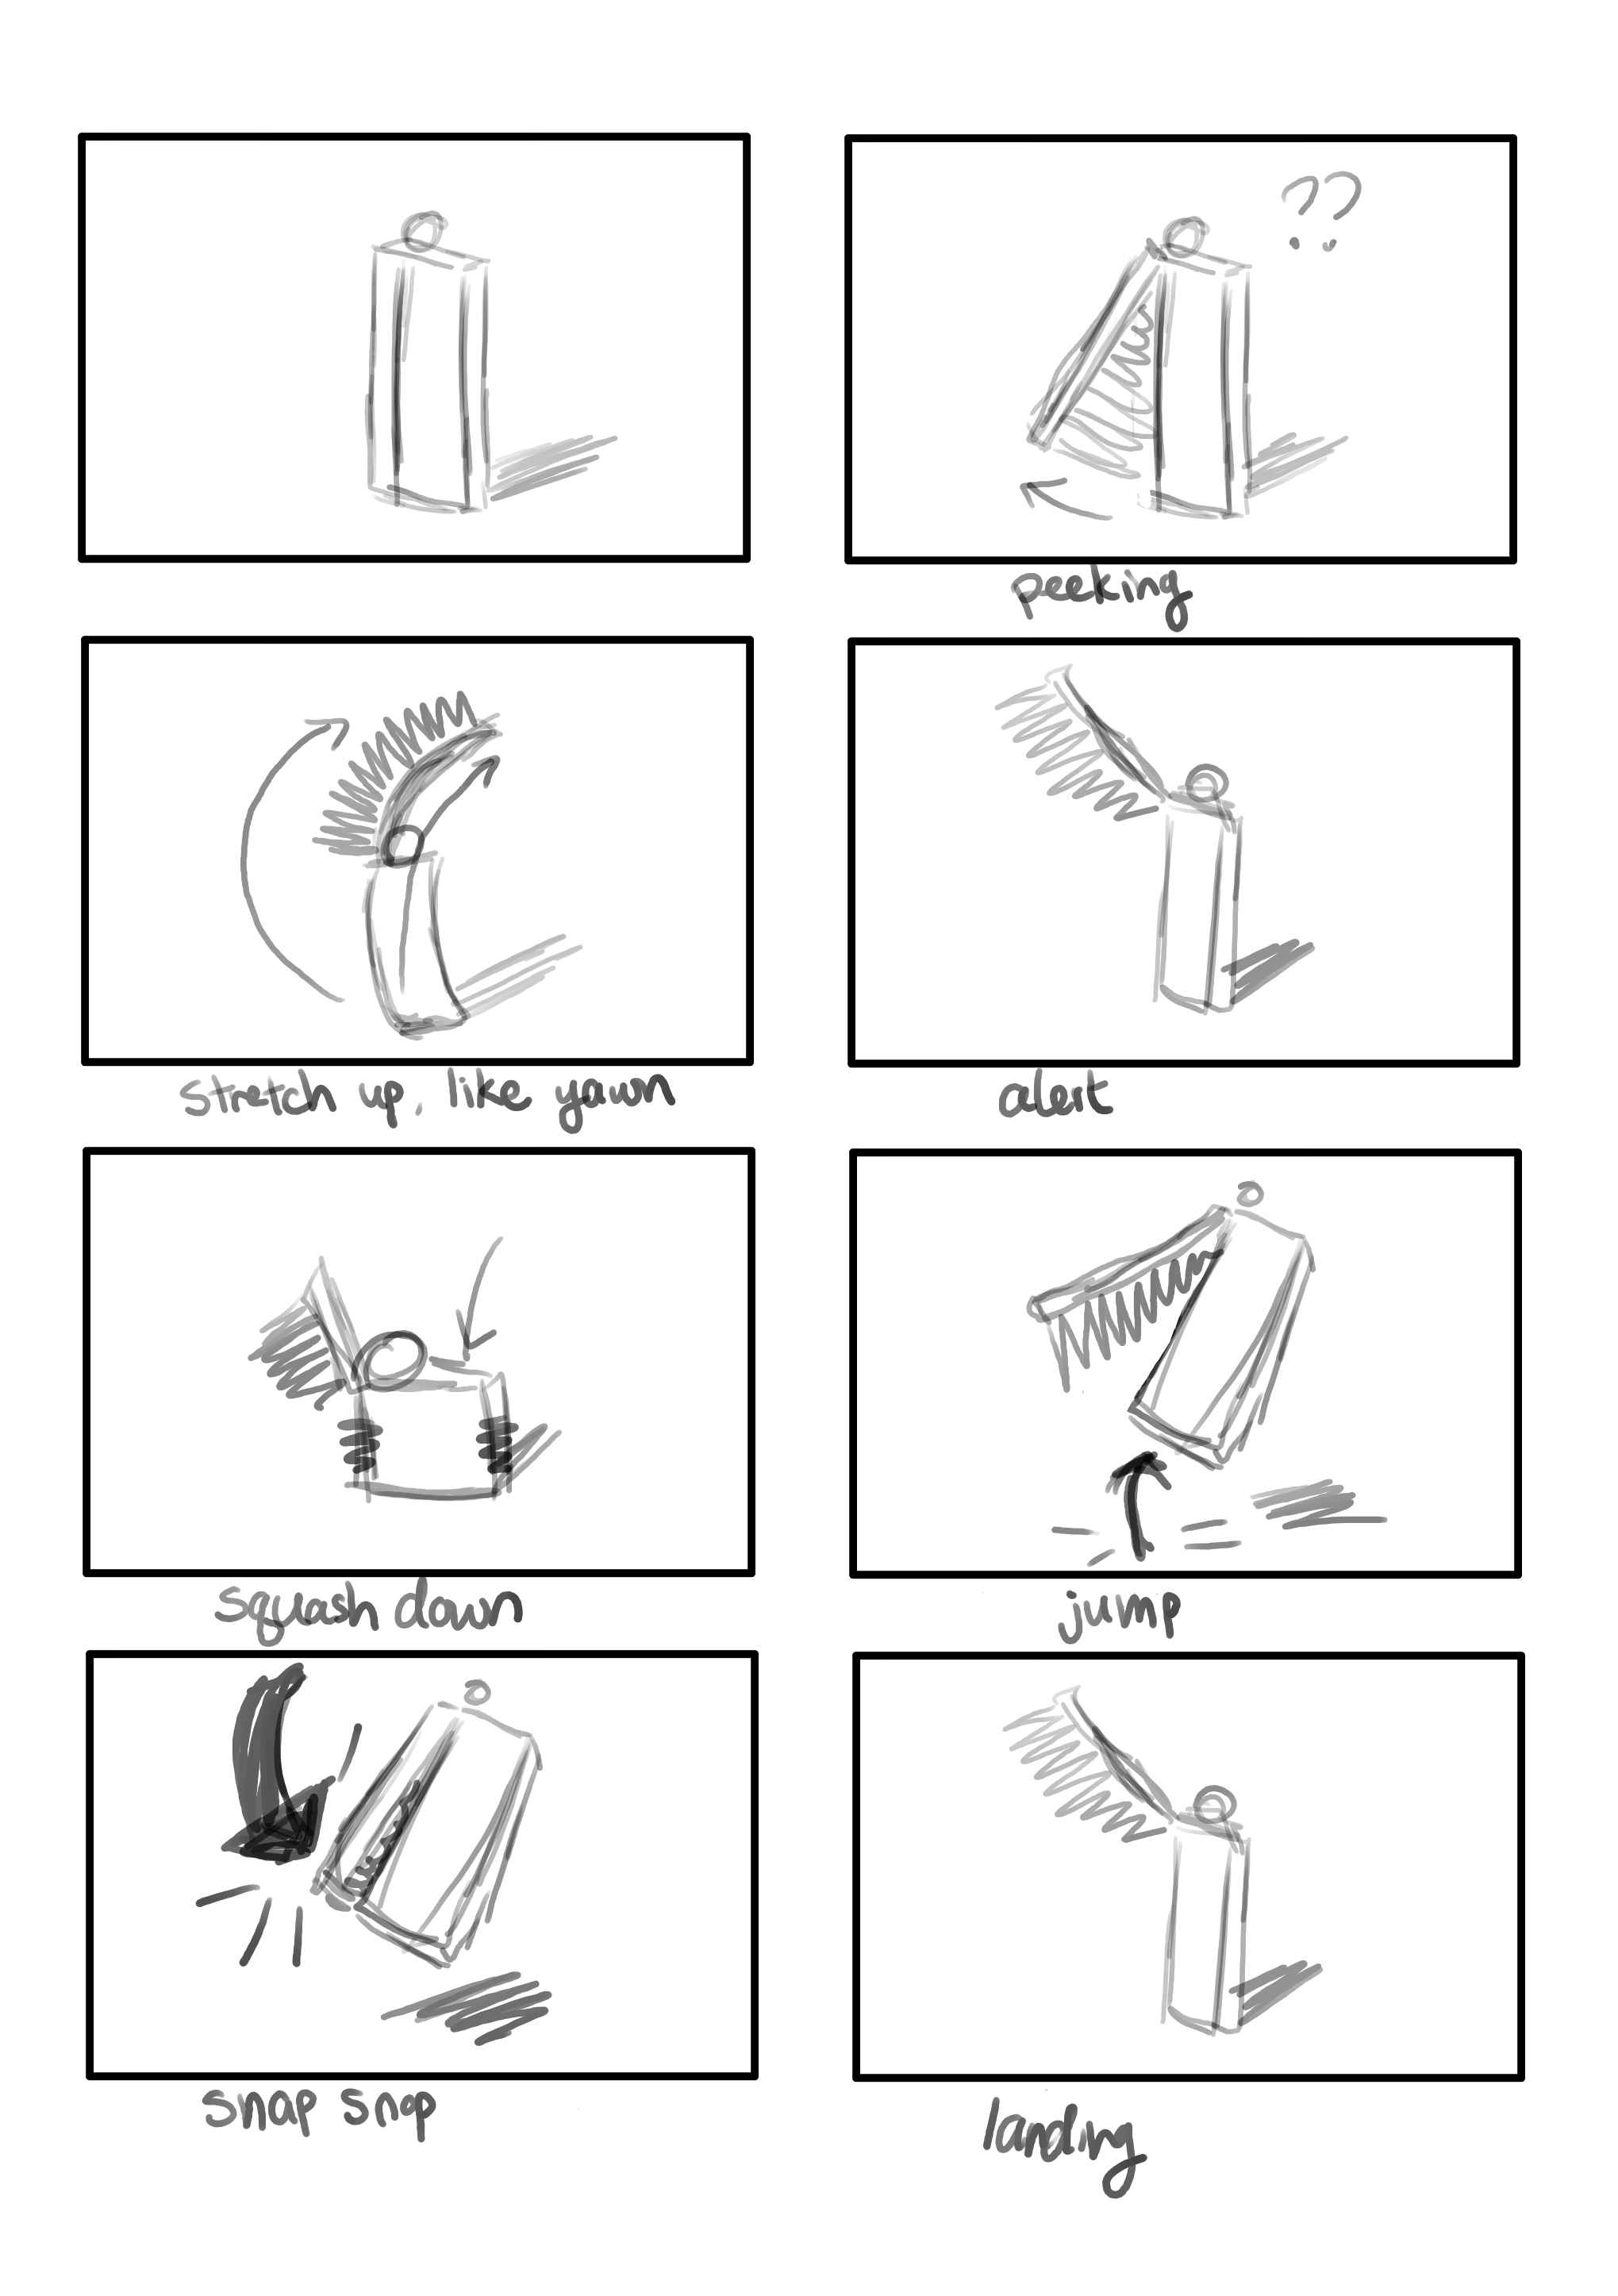 ??
peeking
stretch up, like yawn
alert
squash down
jump
snap snap
landing